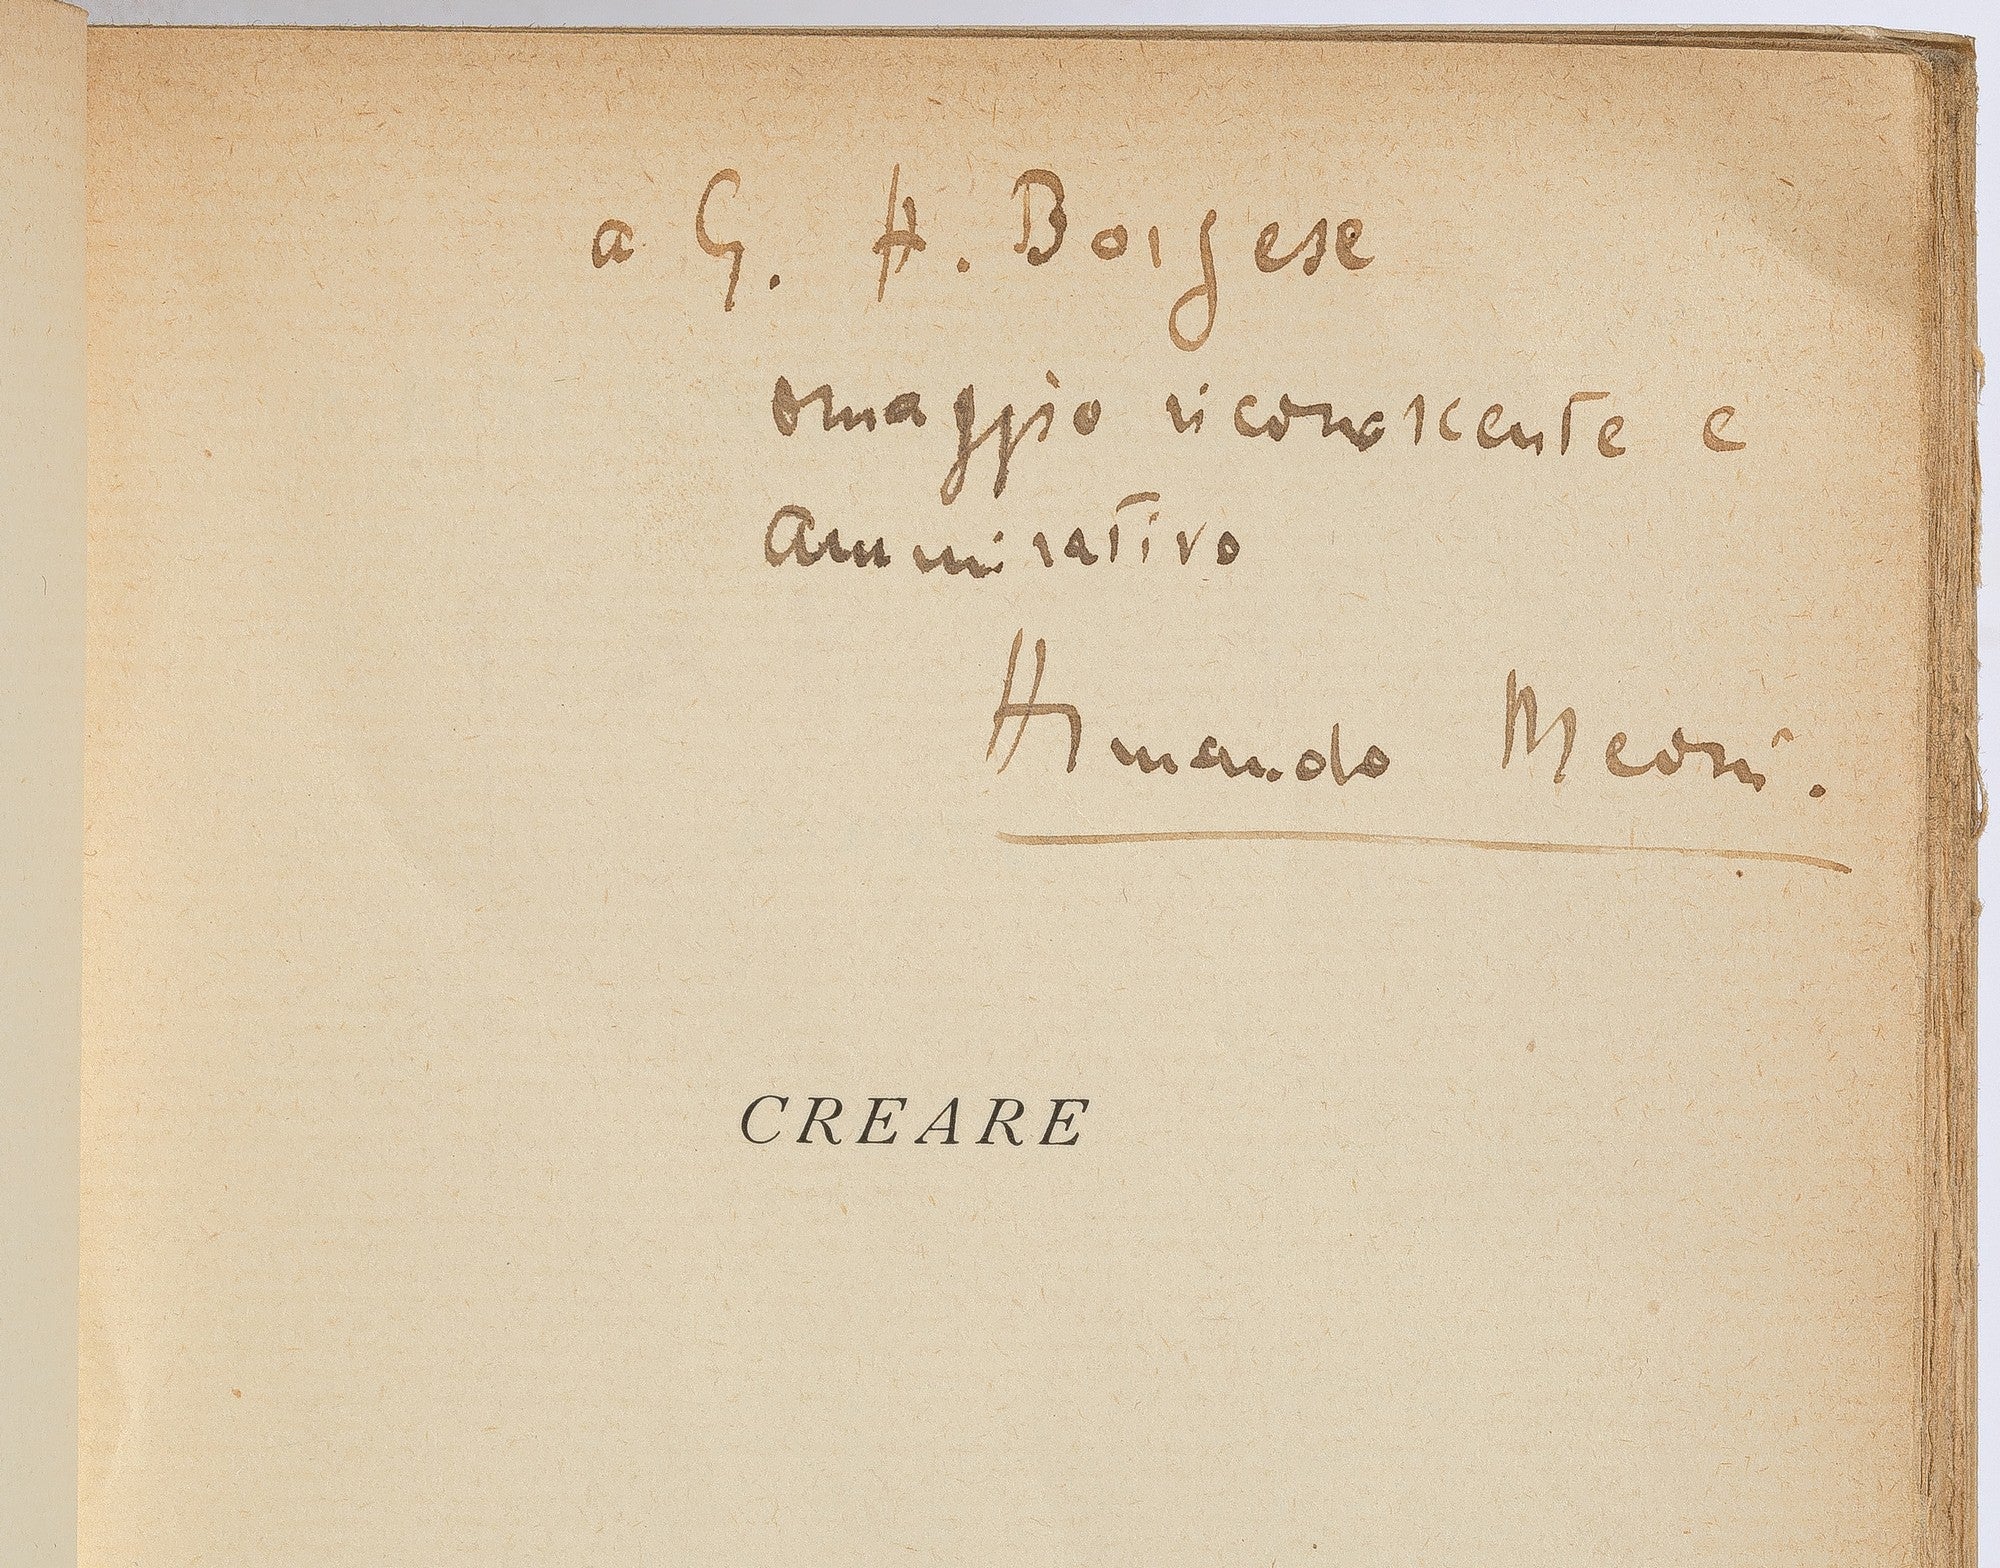 a G. A. Borgese
omaggio riconoscente e
ammirativo
Armando Meoni.
CREARE